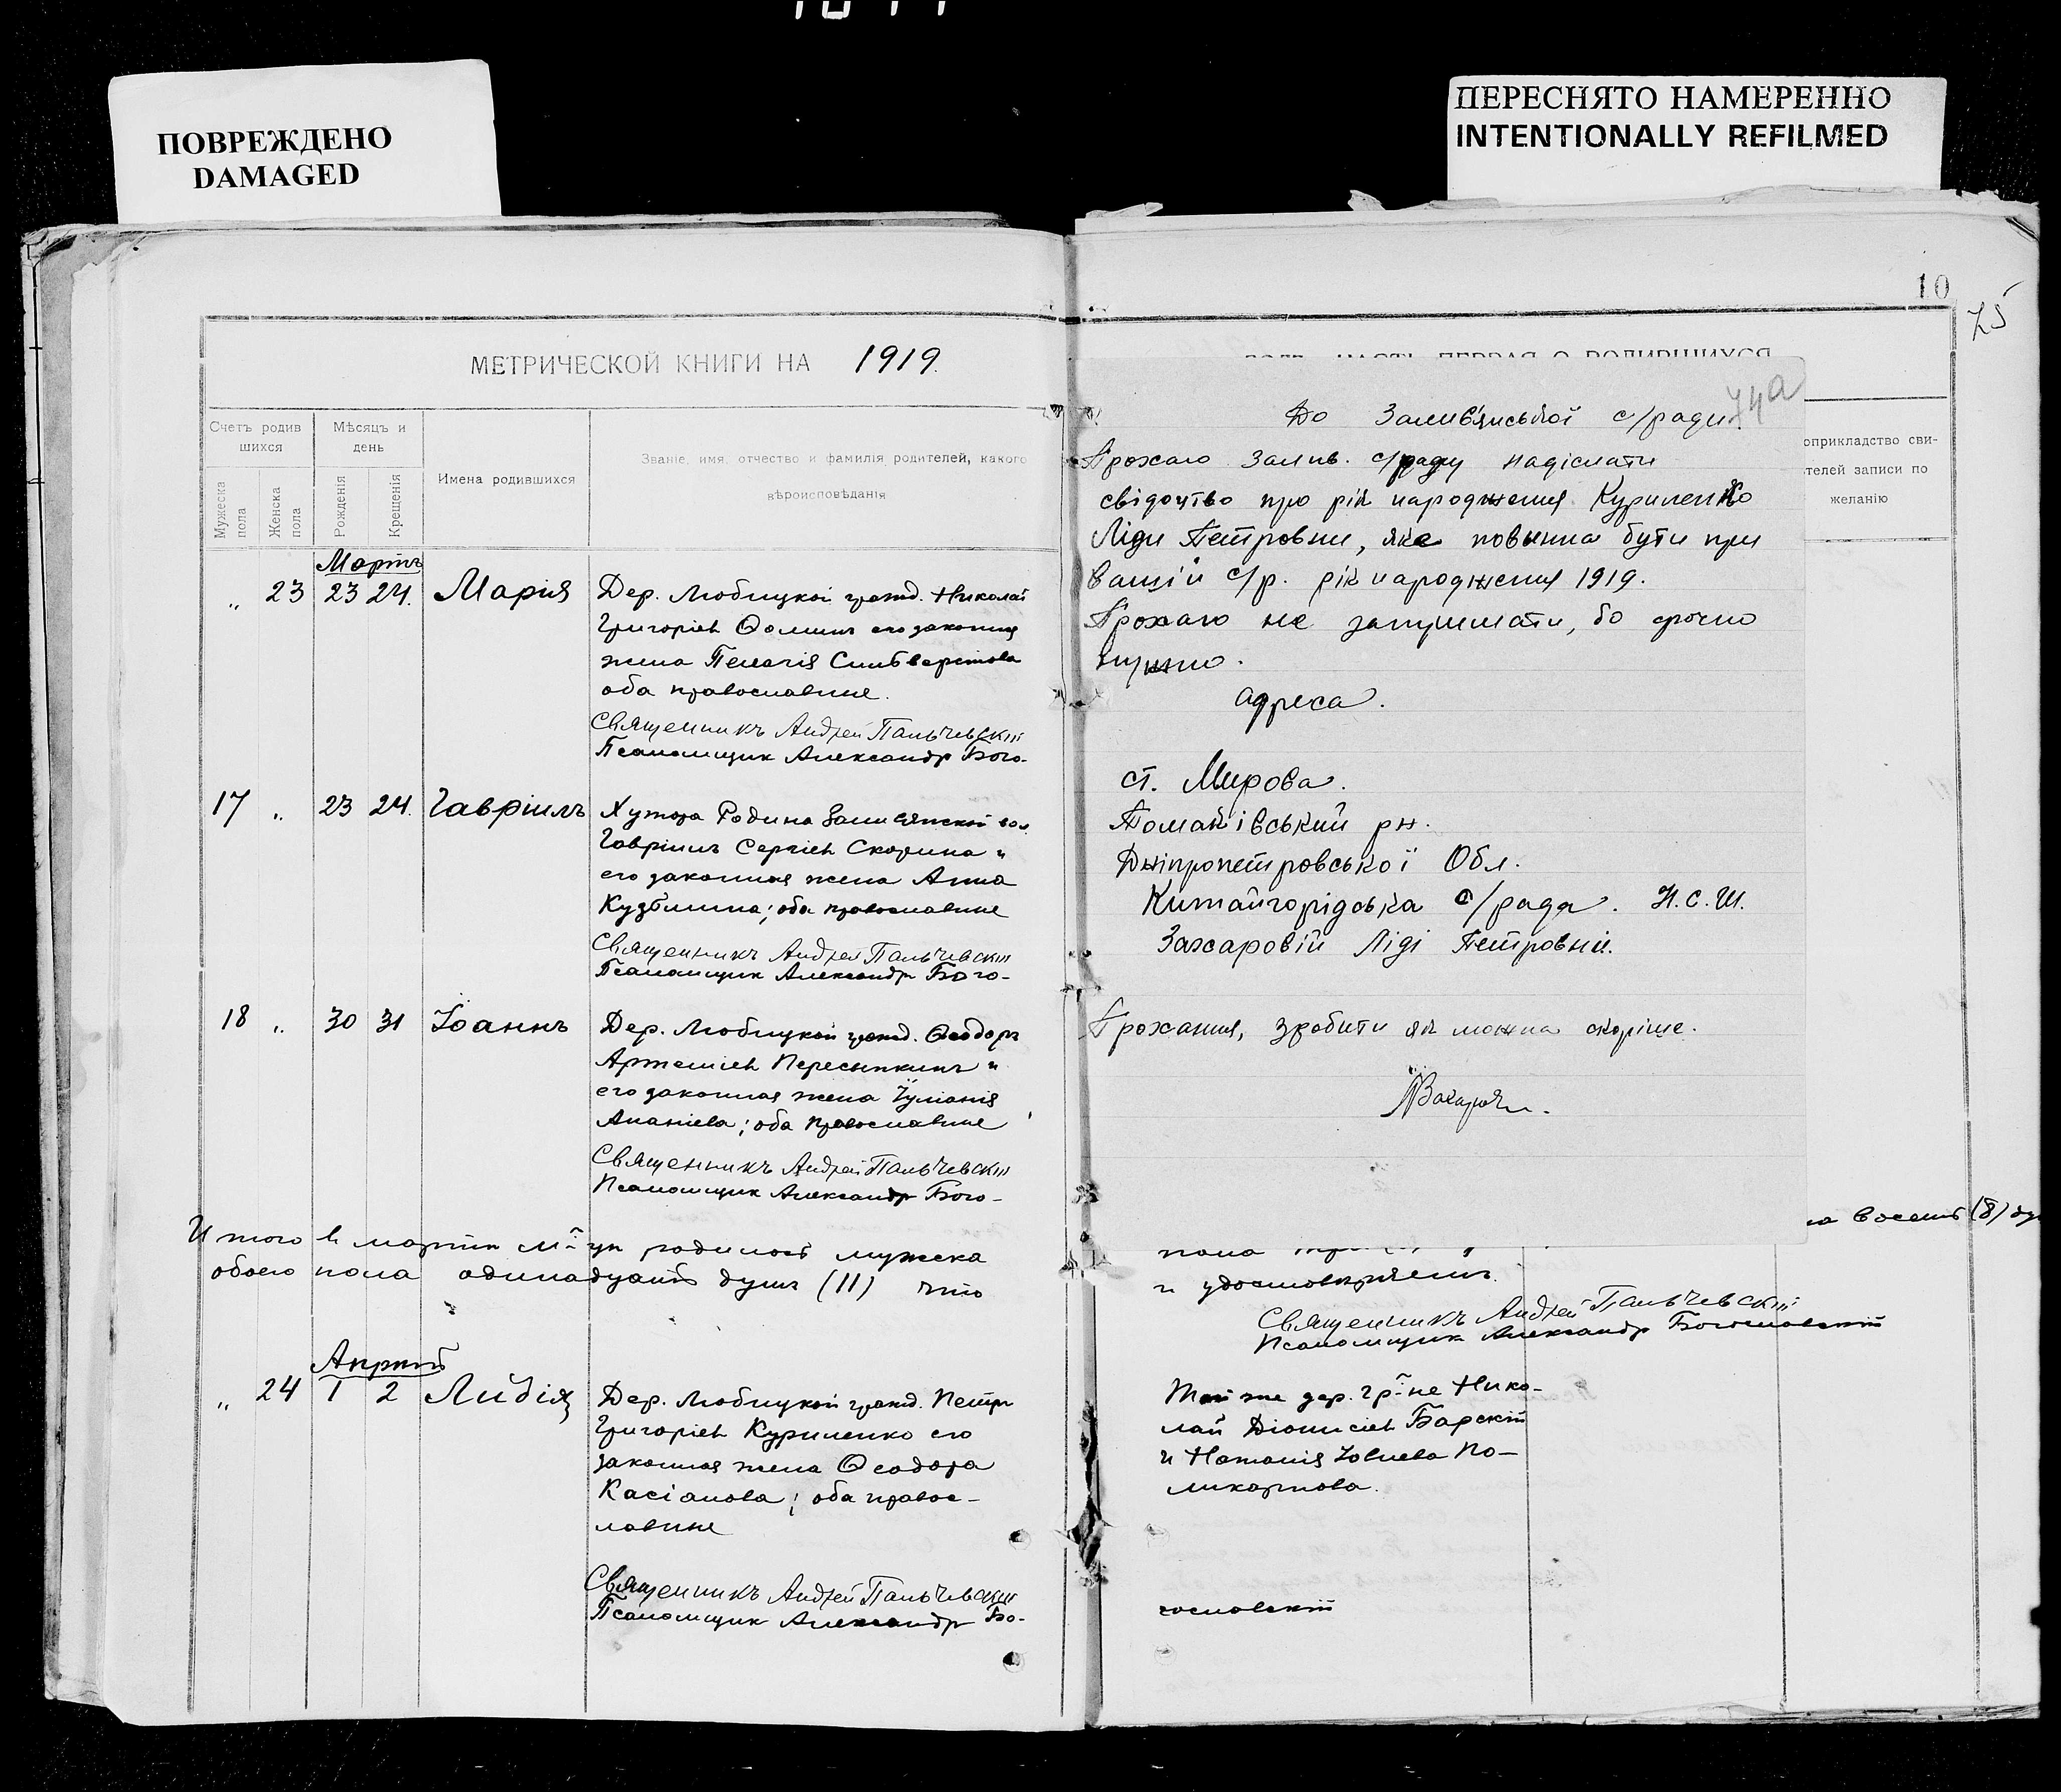 ПОВРЕЖДЕНО
DAMAGED
ПЕРЕСНЯТО НАМЕРЕННО
INTENTIONALLY REFILMED
МЕТРИЧЕСКОЙ КНИГИ НА 1919.
Счетъ родив
шихся
Мужеска пола
Женска пола
Мѣсяцъ и
день
Рожденія
Крещенія
Имена родившихся
Званіе, имя, отчество и фамилія родителей, какого
вѣроисповѣданія
Мартъ
„ 23 23 24. Марія
Дер. Любицкой гражд. Николай
Григоріев Ѳоминъ его законная
жена Пелагія Сильвестрова
оба православные.
Священникъ Андрей Пальчевскій
Псаломщик Александр Бого-
17 „ 23 24. Гавріилъ
Хутора Родина
Гавріилъ Сергіев Скорина и
его законная жена Анна
Кузьмина; оба православные
Священникъ Андрей Пальчевскій
Псаломщик Александр Бого-
18 „ 30 31 Іоаннъ
Дер. Любицкой гражд. Ѳеодоръ
Артеміев Пересыпкинъ и
его законная жена Іуліанія
Ананіева; оба православные
Священникъ Андрей Пальчевскій
Псаломщик Александр Бого-
Итого в мартѣ м-цѣ родилось мужеска
обоего пола одинадцать душъ (11) что
Апрѣль
„ 24 1 2 Лидія
Дер. Любицкой гражд. Петръ
Григоріев Куриленко его
законная жена Ѳеодора
Касіанова; оба правос-
лавные
Священникъ Андрей Пальчевскій
Псаломщик Александр Бо-
10
75
ЧАСТЬ ПЕРВАЯ О РОДИВШИХСЯ
74а
До Залив'янської с/ради.
Прохаю Залив. с/раду надіслати
свідоцтво про рік народження Куриленко
Ліди Петровни, яке повинна бути при
вашій с/р. рік народження 1919.
Прохаю не затримати, бо срочно
нужно.
адреса.
ст. Мирова.
Томаківський рн.
Дніпропетровської Обл.
Китайгородська с/рада. Н.С.Ш.
Захаровій Ліді Петровній.
Прохання, зробити як можна скоріше.
оприкладство сви-
телей записи по
желанію
восемь (8) ду
пола
и удостовѣряемъ.
Священникъ Андрей Пальчевскій
Псаломщик Александр Богословскій
Той же дер. гр-не Нико-
лай Діонисіев Барскій
и Наталія Іовлева По-
ликарпова.
гословскій